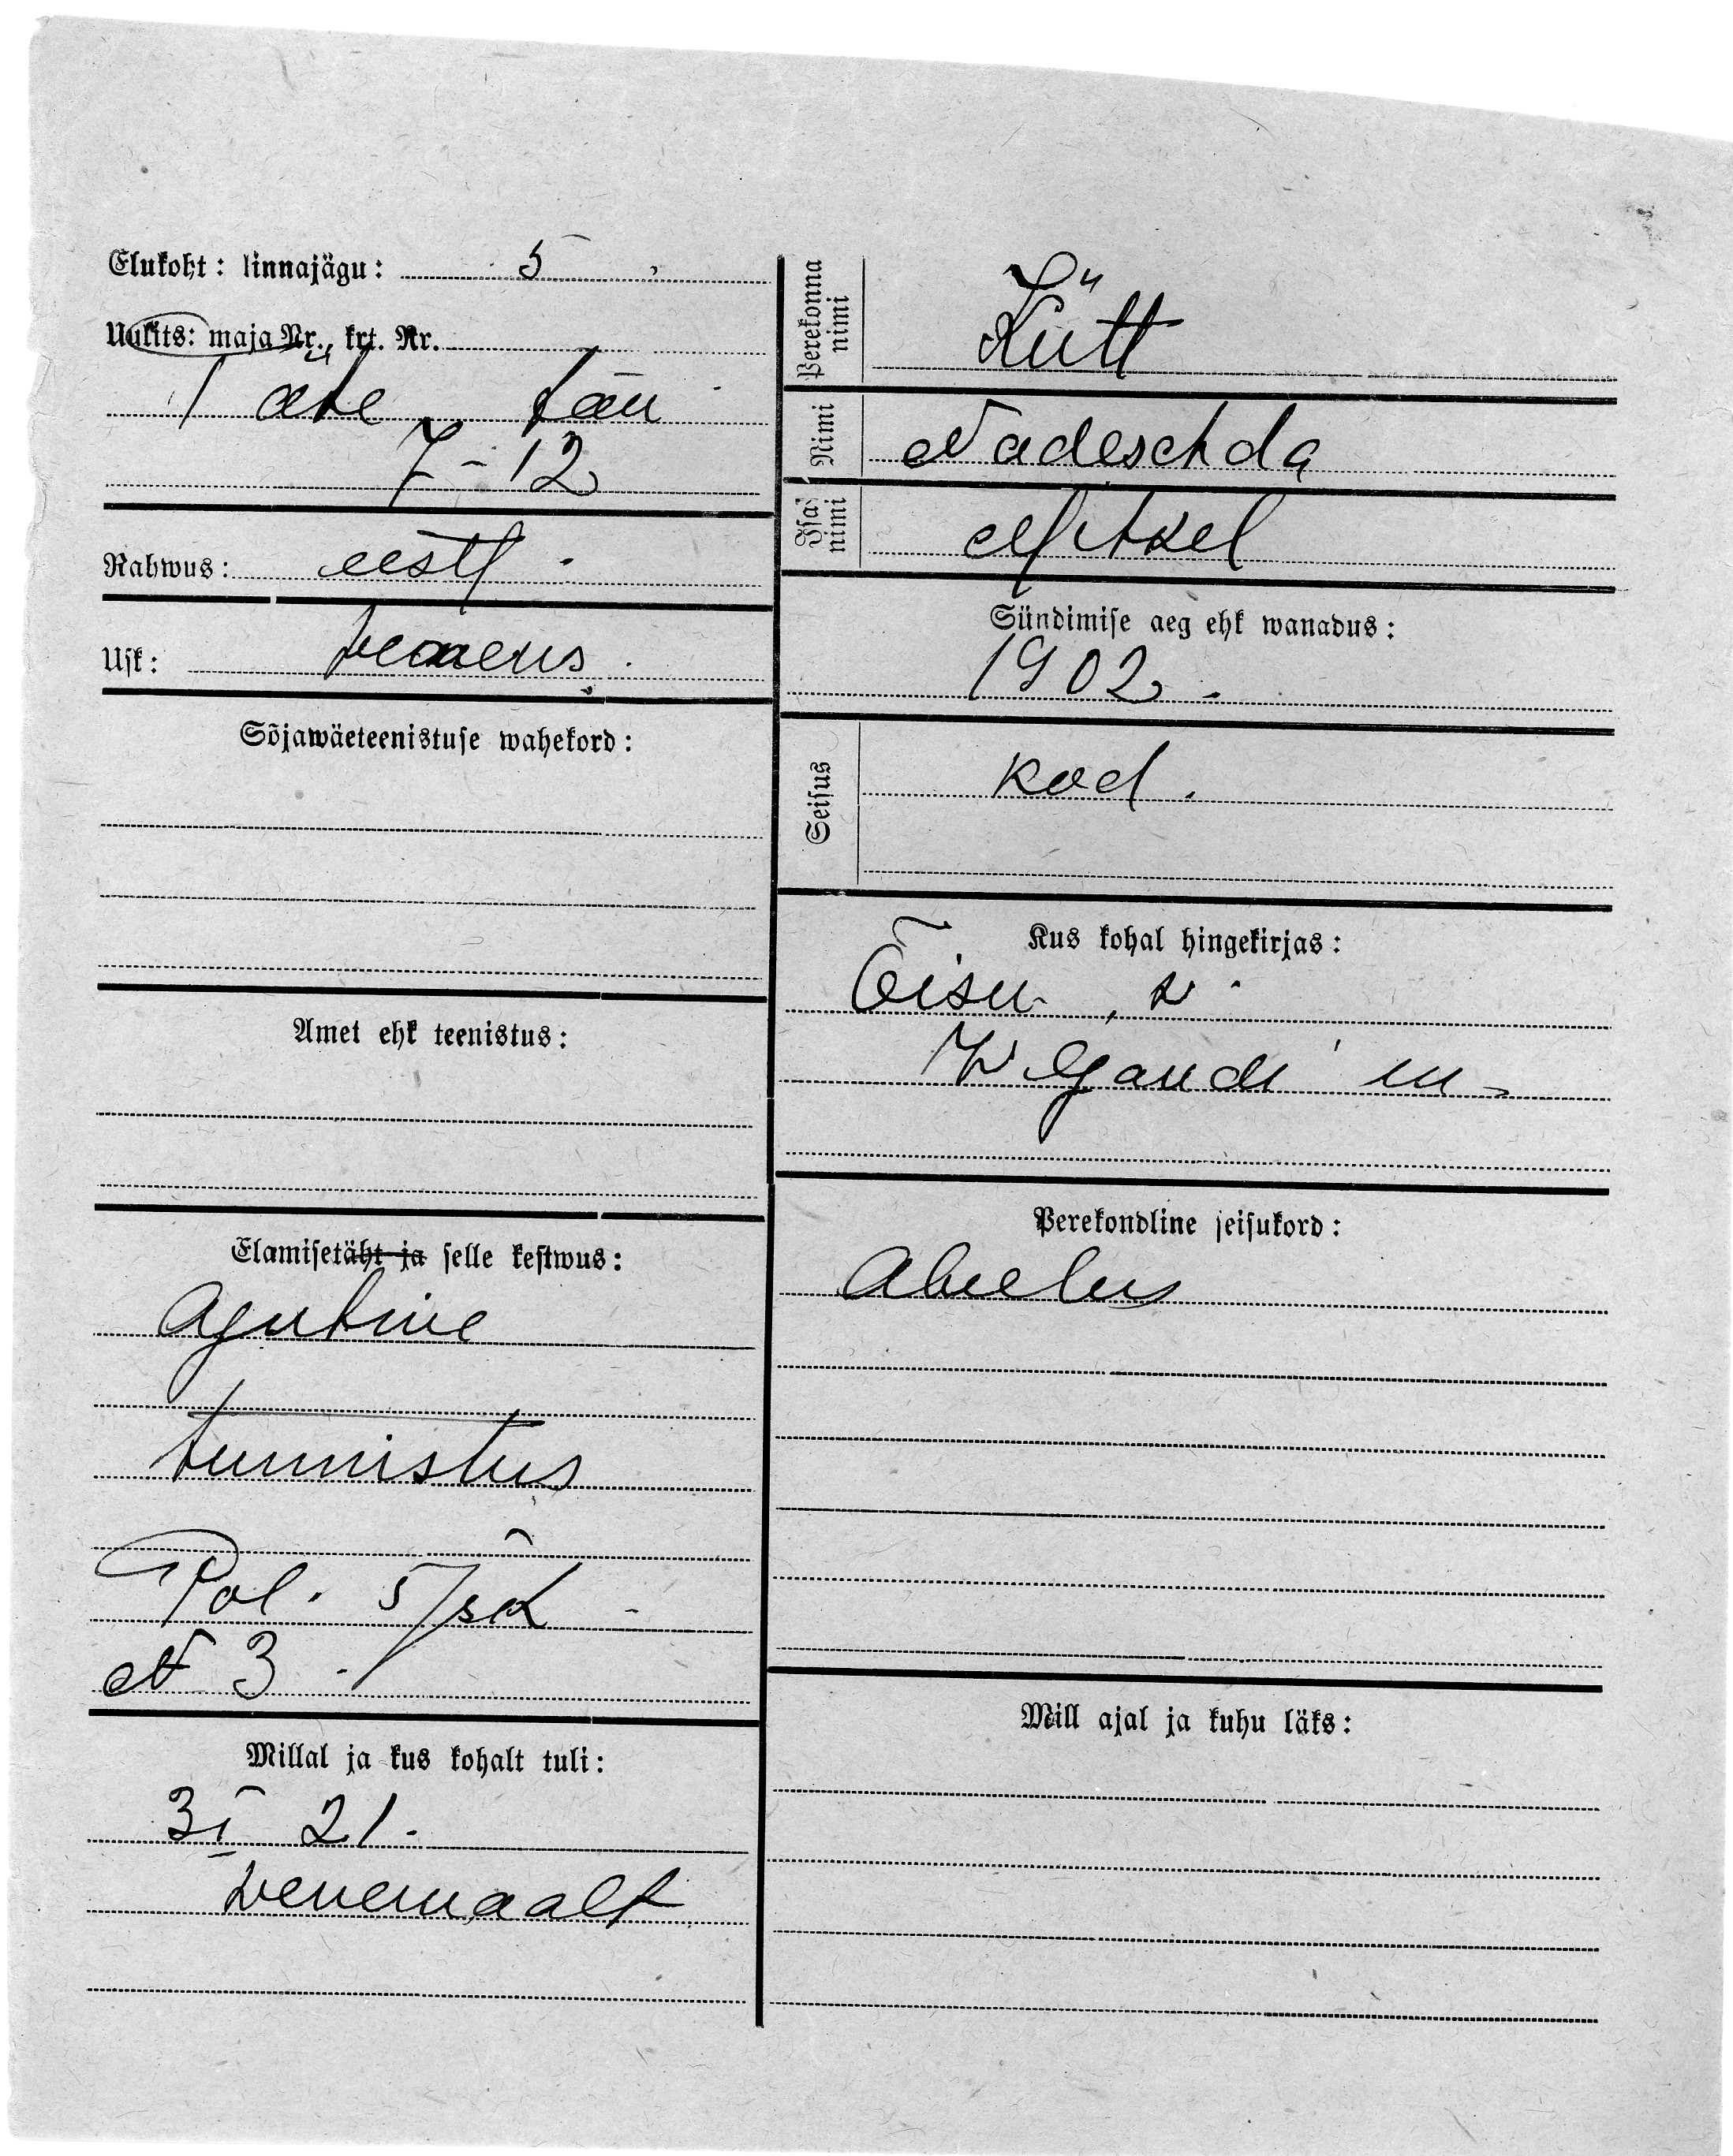 Elukoht: linnajägu: 5
Uulits: maja Nr., krt. Nr.
Tähe tän
7-12
Rahwus: eestl
Usk:
Sõjawäeteenistuse wahekord:
Amet ehk teenistus:
Elamisetäht ja selle kestwus:
Ajutine
tunnistus
Pol. 5/jsk
N 3.
Millal ja kus kohalt tuli:
3 I 21.
Venemaalt
Perekonna
nimi
Kütt
Nimi
Nadeschda
Isa
nimi
Mikkel
Sündimise aeg ehk wanadus:
1902.
Seisus
kod.
Kus kohal hingekirjas:
Õisu, v.
Wiljandi m
Perekondline seisukord:
Abielus
Mill ajal ja kuhu läks: